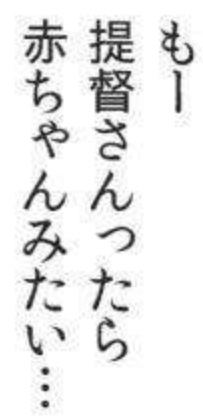 もー
提督さんったら
赤ちゃんみたい…